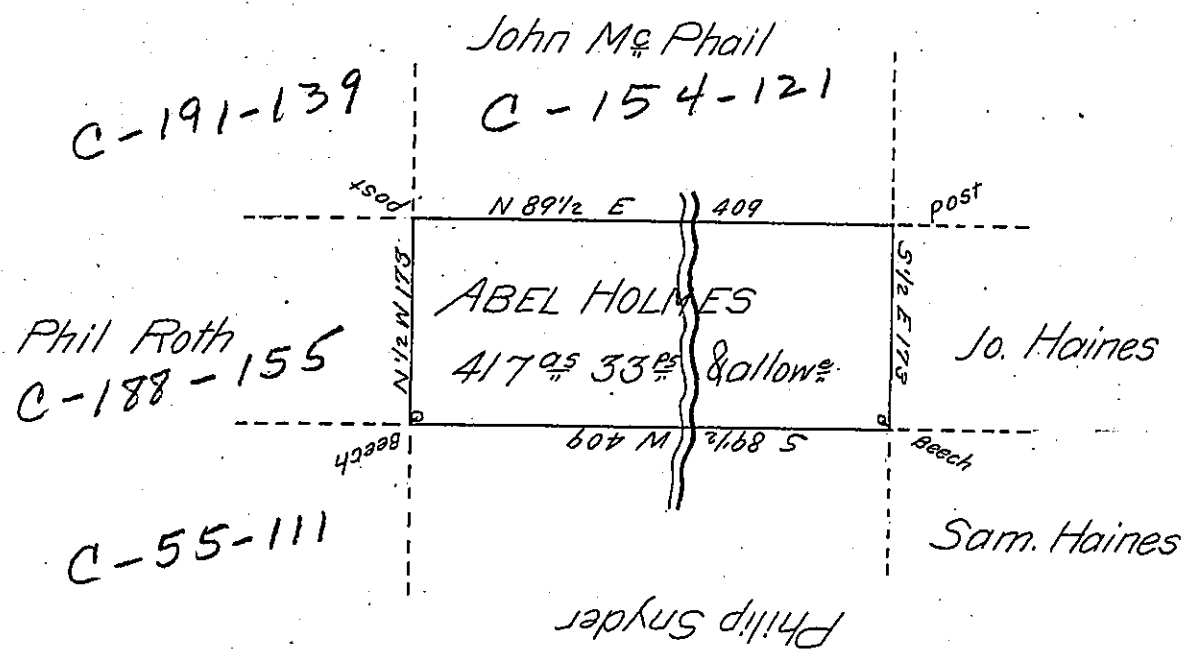 John Mc Phail
C-191-139
C-154-121
Post
N 89½ E 409
post
N ½ W 173
S ½ E 173
ABEL HOLMES
417 as 33 ps & allowe
Phil Roth
C-188-155
Jo. Haines
S 89½ W 409
Beech
Beech
C-55-111
Sam. Haines
Philip Snyder